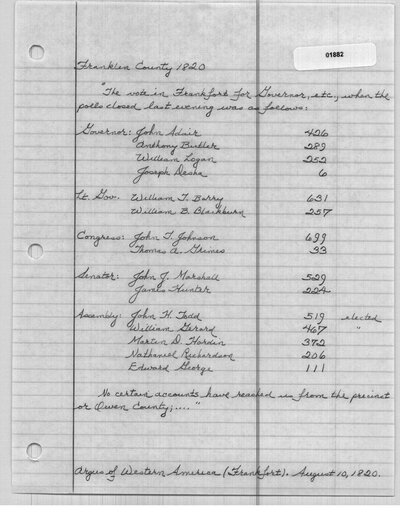 01882
Franklin County 1820
"The vote in Frankfort for Governor, etc., when the
polls closed last evening was as follows:
Governor: John Adair 426
Anthony Butler 289
William Logan 252
Joseph Desha 6
Lt. Gov. William T. Barry 631
William B. Blackburn 257
Congress: John T. Johnson 699
Thomas A. Grimes 33
Senator: John J. Marshall 529
James Hunter 224
Assembly: John H. Todd 519 elected
William Gerard 467 "
Martin D. Hardin 372
Nathaniel Richardson 206
Edward George 111
No certain accounts have reached us from the precinct
or Owen County;...."
Argus of Western America (Frankfort). August 10, 1820.